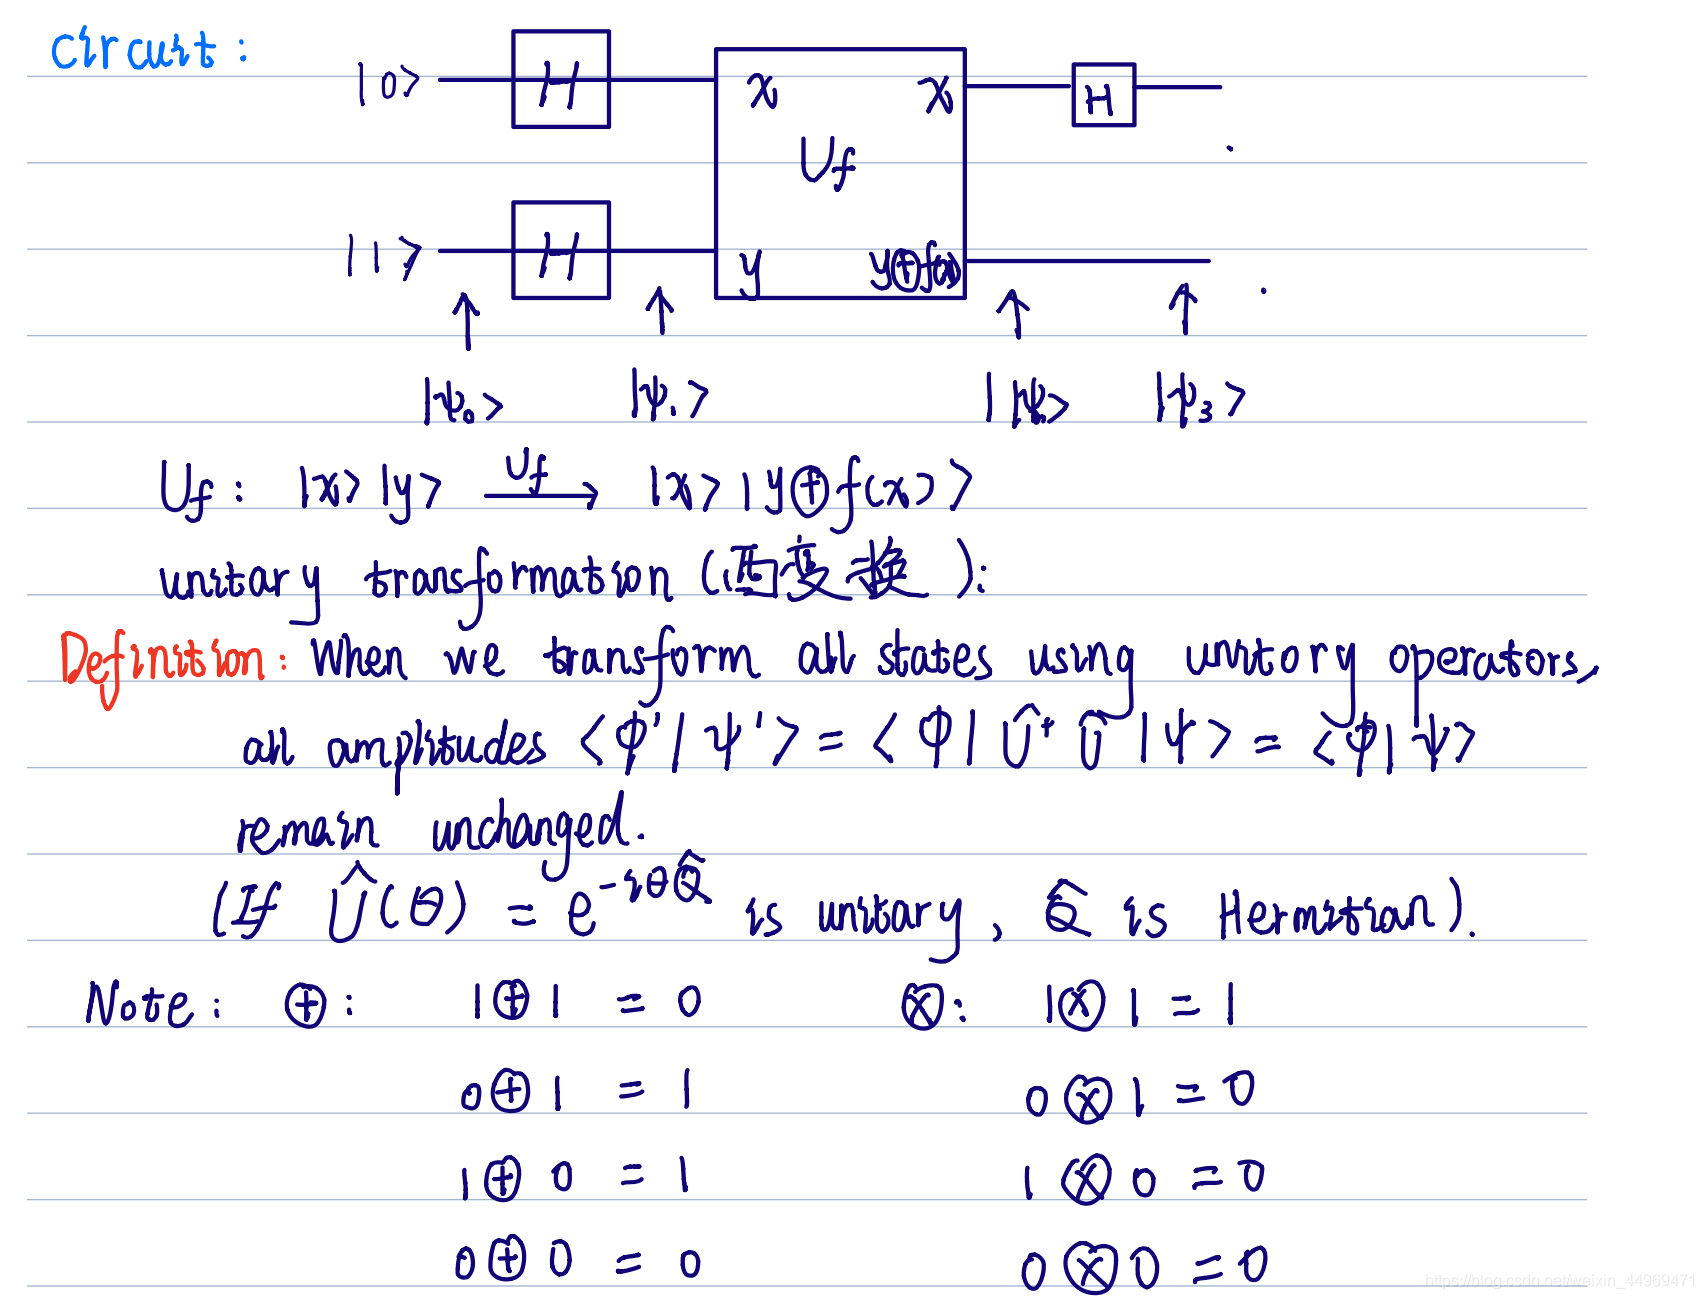 Circuit:
|0> H x x H
U_f
|1> H y y⊕f(x)
|ψ₀> |ψ₁> |ψ₂> |ψ₃>
U_f: |x>|y> U_f→ |x>|y⊕f(x)>
unitary transformation (酉变换):
Definition: When we transform all states using unitory operators,
all amplitudes <φ'|ψ'> = <φ|Û⁺Û|ψ> = <φ|ψ>
remain unchanged.
(If Û(θ) = e^{-iθQ̂} is unitary, Q̂ is Hermitian).
Note: ⊕: 1⊕1 = 0 ⊗: 1⊗1 = 1
0⊕1 = 1 0⊗1 = 0
1⊕0 = 1 1⊗0 = 0
0⊕0 = 0 0⊗0 = 0
https://blog.csdn.net/weixin_44969471